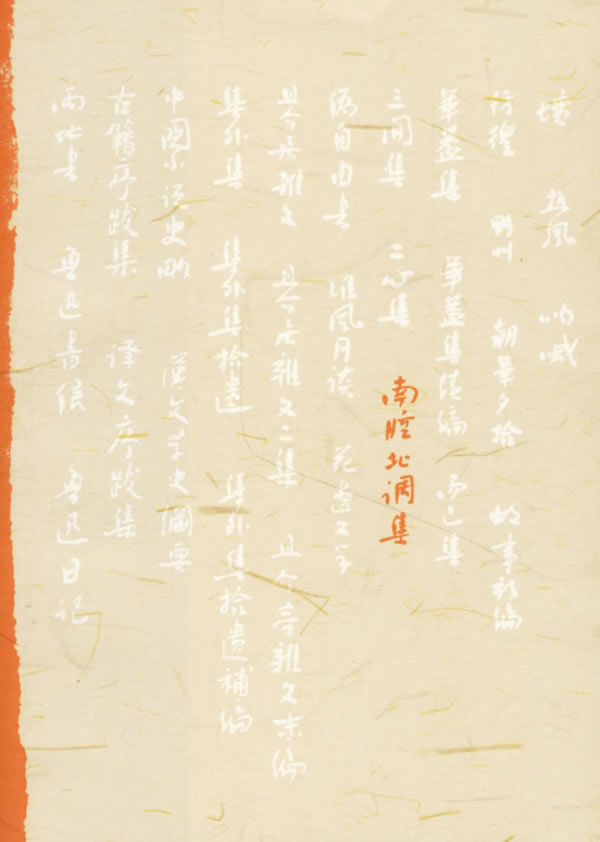 墳 热風 呐喊
彷徨 野草 朝華夕拾 故事新编
華蓋集 華蓋集续编 而已集
三闲集 二心集 南腔北调集
伪自由书 准風月谈 花邊文学
且介亭雜文 且介亭雜文二集 且介亭雜文末编
集外集 集外集拾遗 集外集拾遗補编
中國小说史略 漢文学史綱要
古籍序跋集 译文序跋集
两地書 魯迅書信 魯迅日记